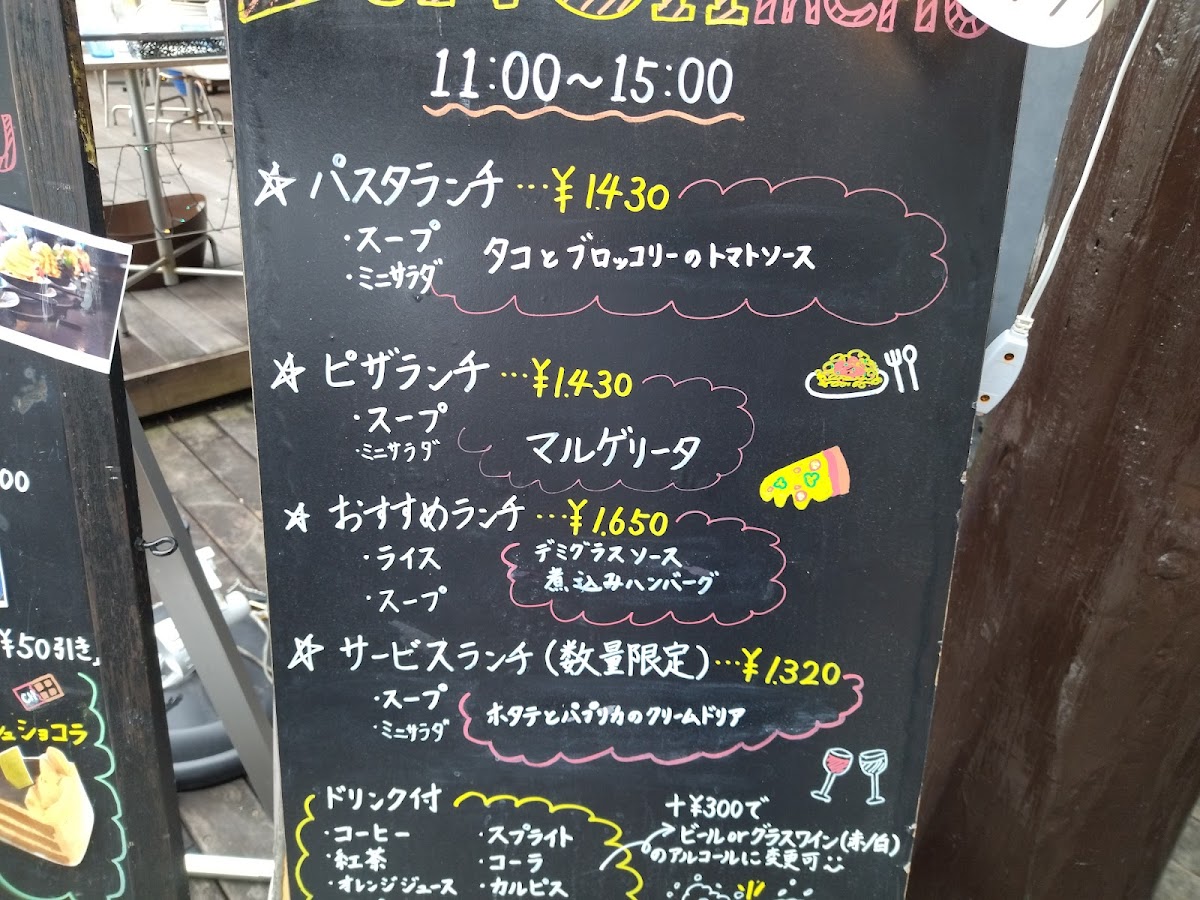 menu
11:00～15:00
☆ パスタランチ …¥1.430
・スープ
・ミニサラダ
タコとブロッコリーのトマトソース
☆ ピザランチ …¥1.430
・スープ
・ミニサラダ
マルゲリータ
☆ おすすめランチ …¥1.650
・ライス
・スープ
デミグラスソース
煮込みハンバーグ
☆ サービスランチ(数量限定)…¥1.320
・スープ
・ミニサラダ
ホタテとパプリカのクリームドリア
ドリンク付
・コーヒー
・紅茶
・オレンジジュース
・スプライト
・コーラ
・カルピス
+¥300で
ビールorグラスワイン(赤/白)
のアルコールに変更可
00
¥50引き」
ショコラ